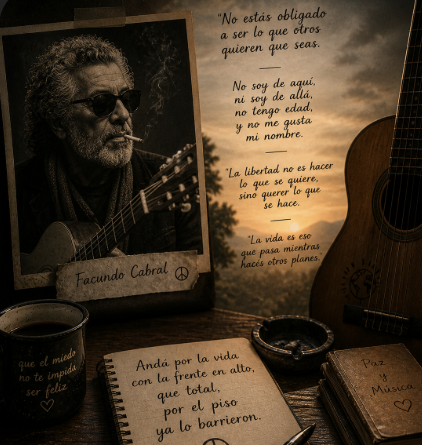 "No estás obligado
a ser lo que otros
quieren que seas.
No soy de aquí,
ni soy de allá,
no tengo edad,
y no me gusta
mi nombre.
"La libertad no es hacer
lo que se quiere,
sino querer lo que
se hace.
"La vida es eso
que pasa mientras
hacés otros planes.
Facundo Cabral
que el miedo
no te impida
ser feliz
Andá por la vida
con la frente en alto,
que total,
por el piso
ya lo barrieron.
Paz
y
Música